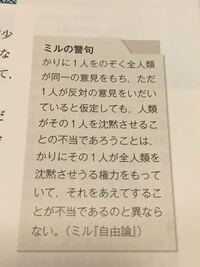 ミルの警句
かりに1人をのぞく全人類
が同一の意見をもち、ただ
1人が反対の意見をいだい
ていると仮定しても、人類
がその1人を沈黙させるこ
との不当であろうことは、
かりにその1人が全人類を
沈黙させうる権力をもって
いて、それをあえてするこ
とが不当であるのと異なら
ない。(ミル『自由論』)
少
な
て,